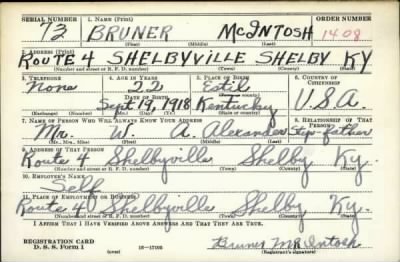 SERIAL NUMBER 1. NAME (Print) ORDER NUMBER
13 BRUNER McINTOSH 1408
(First) (Middle) (Last)
2. ADDRESS (Print)
ROUTE 4 SHELBYVILLE SHELBY KY
(Number and street or R. F. D. number) (Town) (County) (State)
3. TELEPHONE 4. AGE IN YEARS 5. PLACE OF BIRTH 6. COUNTRY OF CITIZENSHIP
None 22 Estil
DATE OF BIRTH (Town or county)
Sept 19, 1918 Kentucky U.S.A.
(Exchange) (Number) (Mo.) (Day) (Yr.) (State or country)
7. NAME OF PERSON WHO WILL ALWAYS KNOW YOUR ADDRESS 8. RELATIONSHIP OF THAT PERSON
Mr. W. A. Alexander Step-father
(Mr., Mrs., Miss) (First) (Middle) (Last)
9. ADDRESS OF THAT PERSON
Route 4 Shelbyville Shelby Ky.
(Number and street or R. F. D. number) (Town) (County) (State)
10. EMPLOYER'S NAME
Self
11. PLACE OF EMPLOYMENT OR BUSINESS
Route 4 Shelbyville Shelby Ky.
(Number and street or R. F. D. number) (Town) (County) (State)
I AFFIRM THAT I HAVE VERIFIED ABOVE ANSWERS AND THAT THEY ARE TRUE.
REGISTRATION CARD
D. S. S. Form 1 (over) 16—17105 Bruner McIntosh
(Registrant's signature)